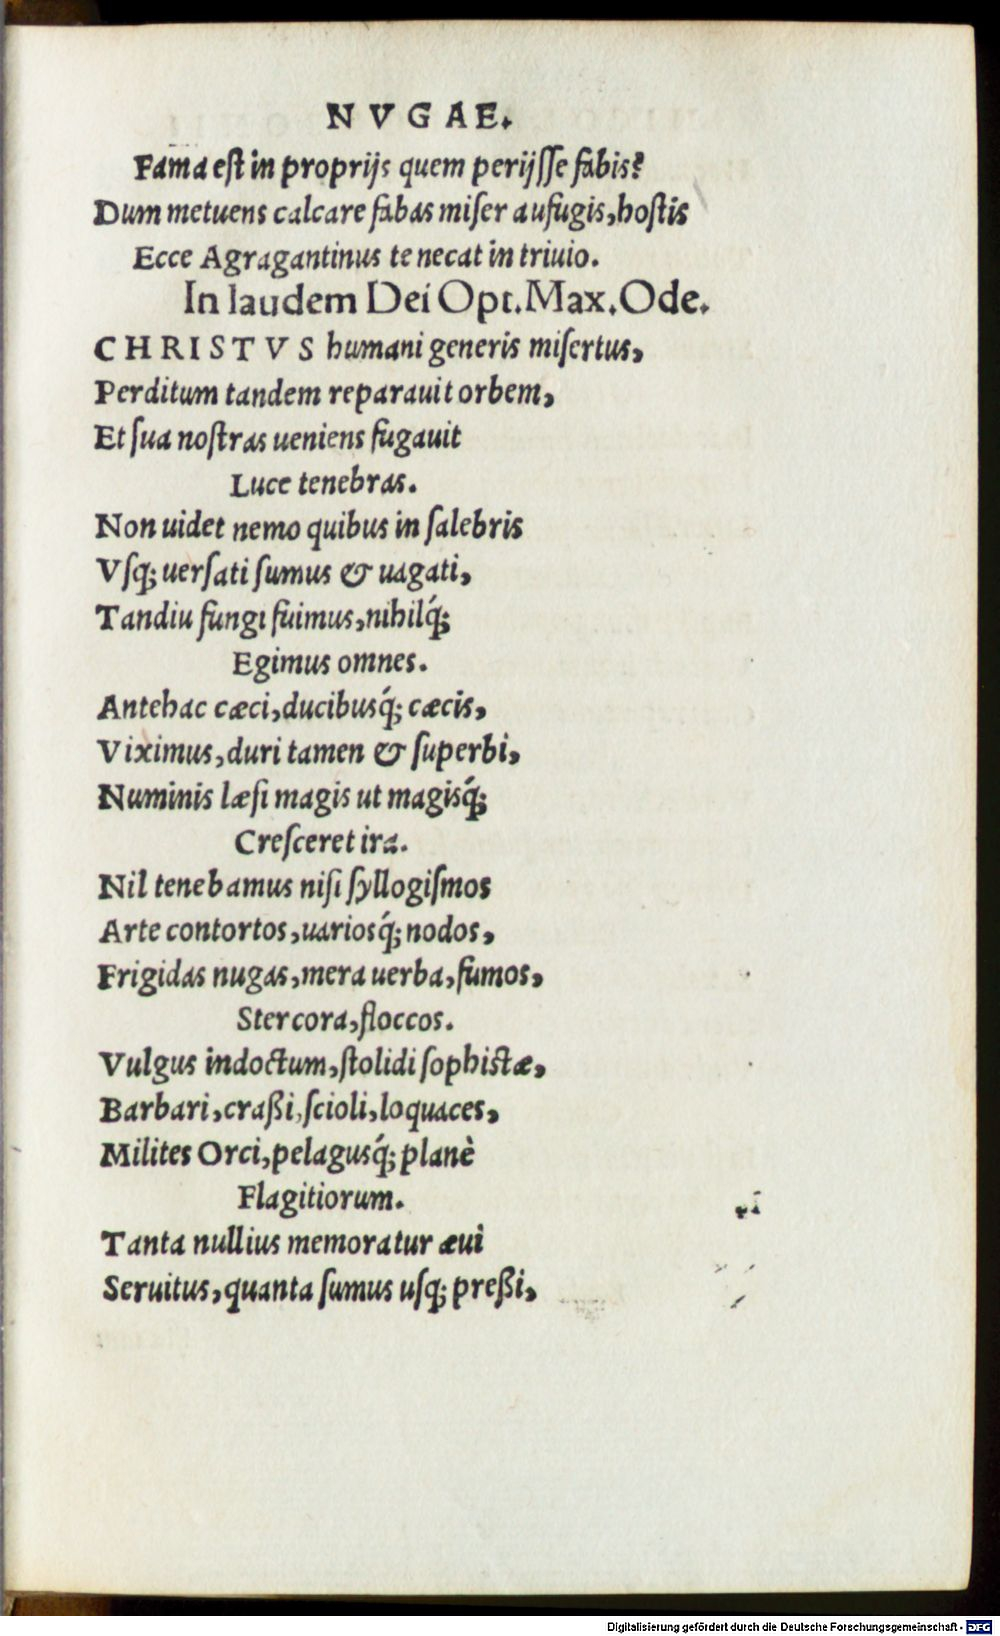 NVGAE.
Fama est in proprijs quem perijſſe fabis?
Dum metuens calcare fabas miſer aufugis, hostis
Ecce Agragantinus te necat in triuio.
In laudem Dei Opt. Max. Ode.
CHRISTVS humani generis miſertus,
Perditum tandem reparauit orbem,
Et ſua noſtras ueniens fugauit
Luce tenebras.
Non uidet nemo quibus in ſalebris
Vſq; uerſati ſumus & uagati,
Tandiu fungi fuimus, nihilq́;
Egimus omnes.
Antehac cæci, ducibusq́; cæcis,
Viximus, duri tamen & ſuperbi,
Numinis læſi magis ut magisq́;
Creſceret ira.
Nil tenebamus niſi ſyllogiſmos
Arte contortos, uariosq́; nodos,
Frigidas nugas, mera uerba, fumos,
Stercora, floccos.
Vulgus indoctum, ſtolidi ſophistæ,
Barbari, craßi, ſcioli, loquaces,
Milites Orci, pelagusq́; planè
Flagitiorum.
Tanta nullius memoratur æui
Seruitus, quanta ſumus uſq; preßi,
Digitalisierung gefördert durch die Deutsche Forschungsgemeinschaft - DFG